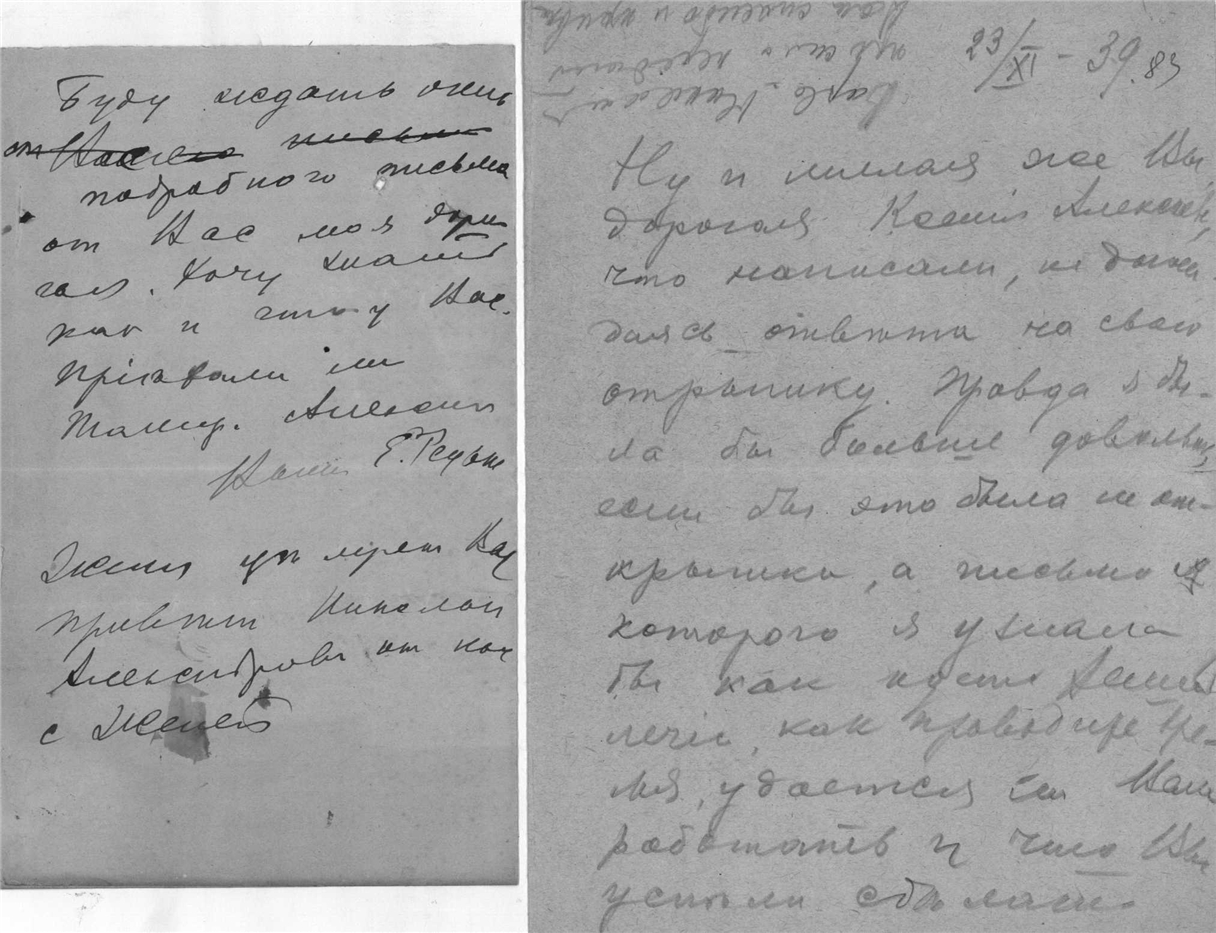 Буду ждать очень
от Вашего письма
подробного письма
от Вас моя доро
гая. Хочу знать
как и что у Вас.
Приехали ли
Ваша Е. Гедике
Женя целует Вас
привет Николаю
Александров. от нас
с Женей
23/XI - 39.
Ну и милая же Вы,
дорогая Ксения Алексеев,
что написали, не дожи
даясь ответа на свою
открытку. Правда я бы-
ла бы больше довольна,
если бы это была не от-
крытка, а письмо из
которого я узнала
бы как идет Ваше
лечение, как проводите вре-
мя, удается ли Вам
работать и что Вы
успели сделать